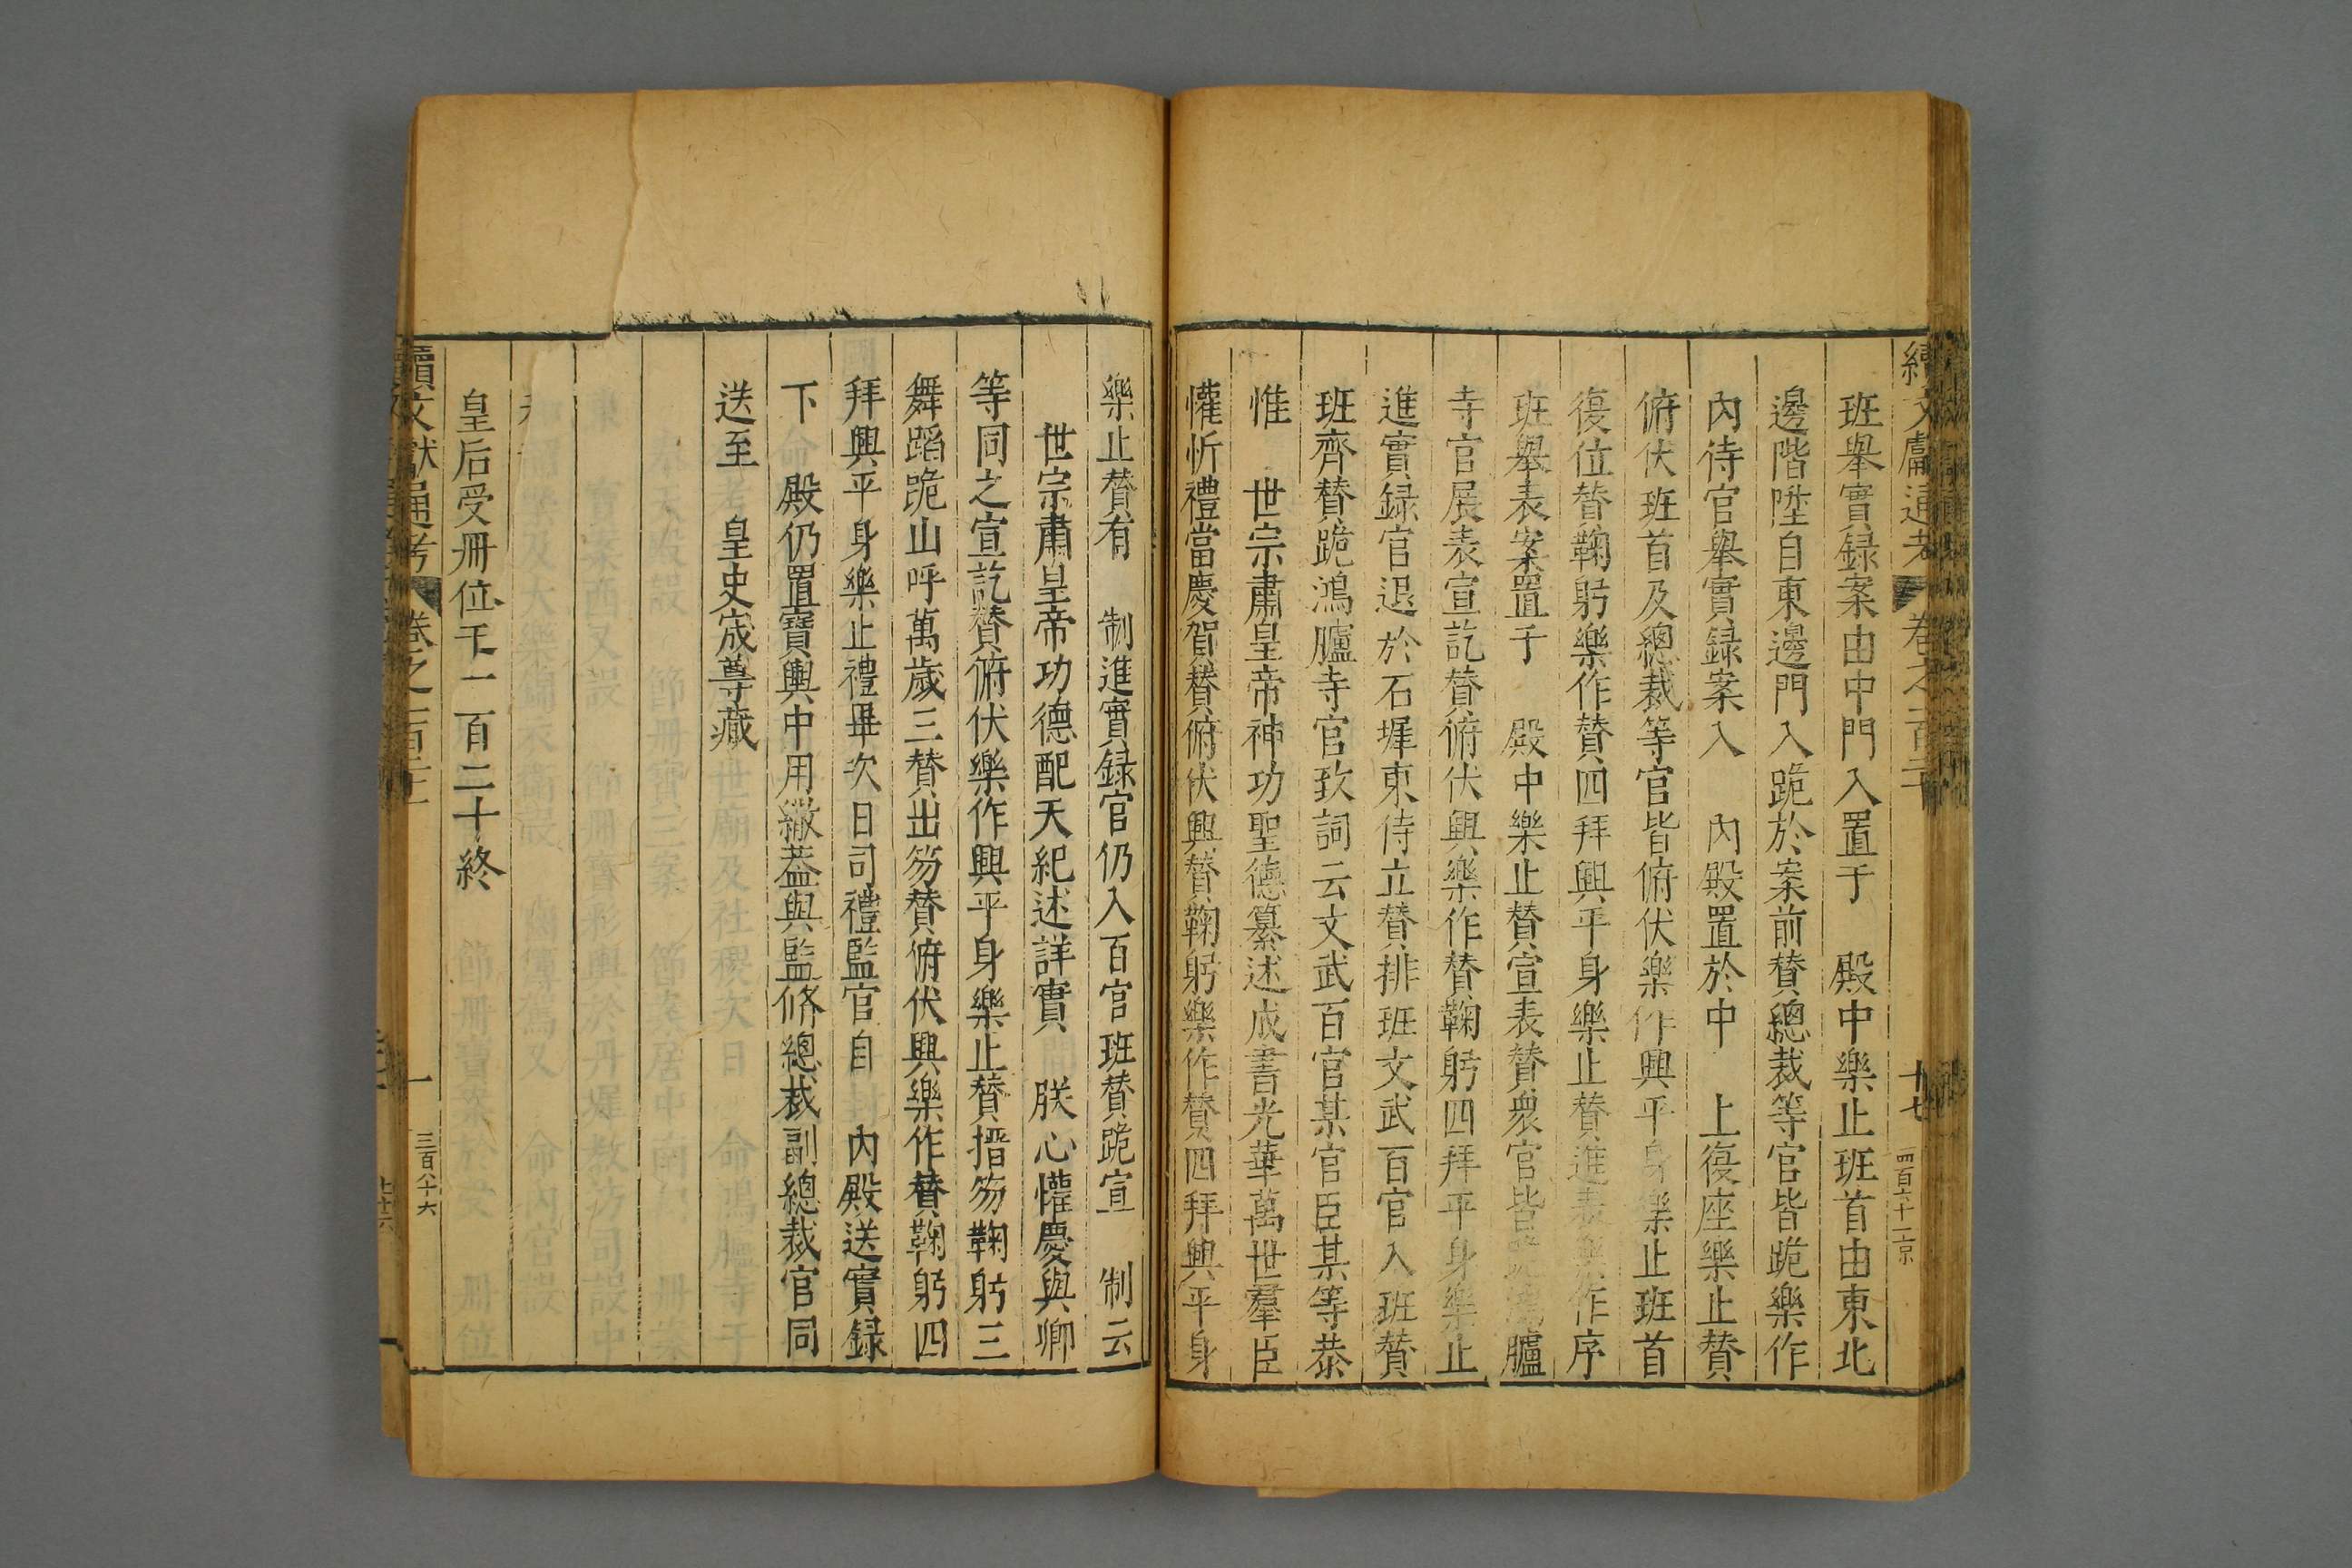 續文獻通考 卷之一百二十 十七 四百六十二 京
班舉實録案由中門入置于 殿中樂止班首由東北
邊階陞自東邊門入跪於案前賛總裁等官皆跪樂作
內侍官舉實録案入 內殿置於中 上復座樂止賛
俯伏班首及總裁等官皆俯伏樂作興平身樂止班首
復位賛鞠躬樂作賛四拜興平身樂止賛進表樂作序
班舉表案置于 殿中樂止賛宣表賛衆官皆跪鴻臚
寺官展表宣訖賛俯伏興樂作賛鞠躬四拜平身樂止
進實録官退於石墀東侍立賛排班文武百官入班賛
班齊賛跪鴻臚寺官致詞云文武百官某官臣某等恭
惟 世宗肅皇帝神功聖德纂述成書光華萬世羣臣
懽忻禮當慶賀賛俯伏興賛鞠躬樂作賛四拜興平身
樂止賛有 制進實録官仍入百官班賛跪宣 制云
世宗肅皇帝功德配天紀述詳實 朕心懽慶與卿
等同之宣訖賛俯伏樂作興平身樂止賛搢笏鞠躬三
舞蹈跪山呼萬歲三賛出笏賛俯伏興樂作賛鞠躬四
拜興平身樂止禮畢次日司禮監官自 內殿送實録
下 殿仍置寶輿中用繖葢與監修總裁副總裁官同
送至 皇史宬尊藏
皇后受冊位 一百二十終
續文獻通考 卷之一百二十 三百八十六